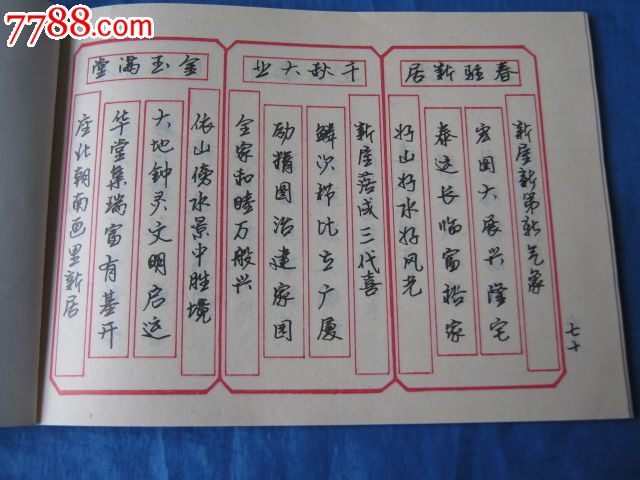 7788.com
春驻新居
新屋新第新气象
宏图大展兴隆宅
泰运长临富裕家
好山好水好风光
千秋大业
新屋落成三代喜
鳞次栉比立广厦
励精图治建家园
全家和睦万般兴
金玉满堂
依山傍水景中胜境
大地钟灵文明启运
华堂集瑞富有基开
座北朝南画里新居
七十